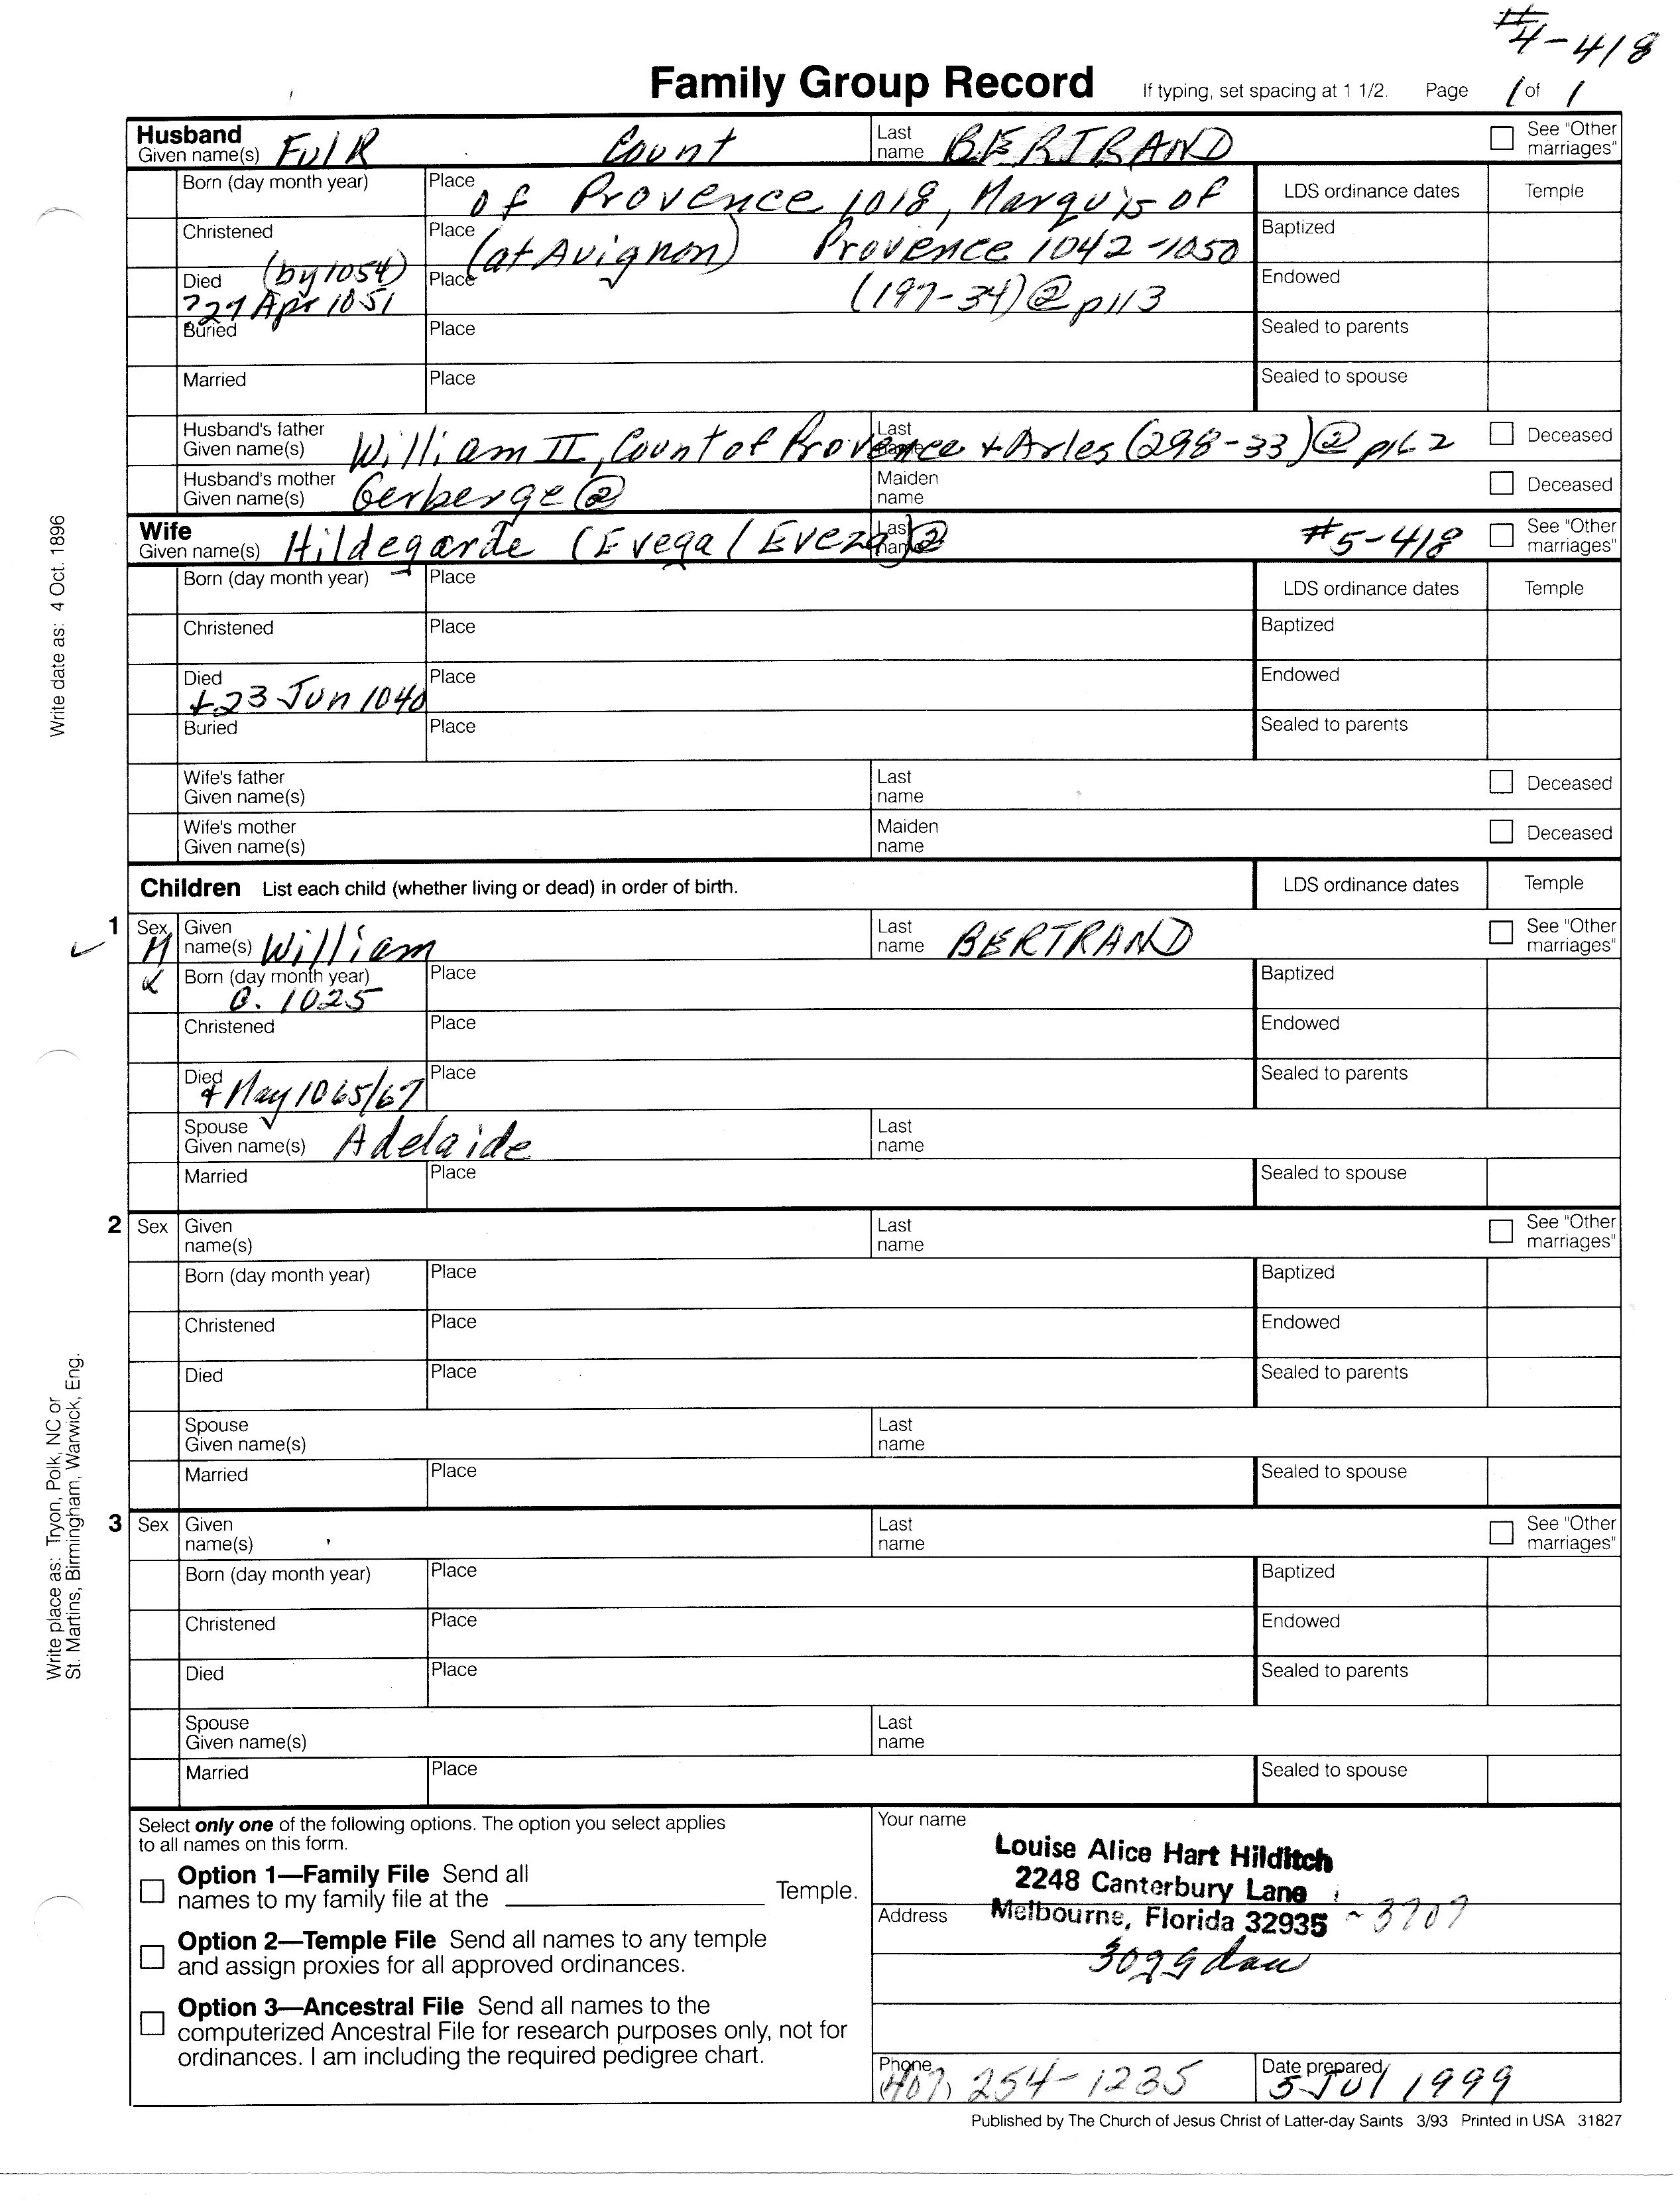 #4-418
Family Group Record If typing, set spacing at 1 1/2. Page 1 of 1
Husband
Given name(s) FulR Count Last name BERTRAND See "Other marriages"
Born (day month year) Place of Provence 1018, Marquis of LDS ordinance dates Temple
Christened Place (at Avignon) Provence 1042-1050 Baptized
Died (by 1054) ?27 Apr 1051 Place (197-34)@p113 Endowed
Buried Place Sealed to parents
Married Place Sealed to spouse
Husband's father Given name(s) William II, Count of Provence + Arles (298-33)@p162 Last name Deceased
Husband's mother Given name(s) Gerberge@ Maiden name Deceased
Wife
Given name(s) Hildegarde (Evega/Eveza)@ Last name #5-418 See "Other marriages"
Born (day month year) Place LDS ordinance dates Temple
Christened Place Baptized
Died +23 Jun 1040 Place Endowed
Buried Place Sealed to parents
Wife's father Given name(s) Last name Deceased
Wife's mother Given name(s) Maiden name Deceased
Children List each child (whether living or dead) in order of birth. LDS ordinance dates Temple
1 Sex M Given name(s) William Last name BERTRAND See "Other marriages"
Born (day month year) c. 1025 Place Baptized
Christened Place Endowed
Died + May 1065/67 Place Sealed to parents
Spouse Given name(s) Adelaide Last name
Married Place Sealed to spouse
2 Sex Given name(s) Last name See "Other marriages"
Born (day month year) Place Baptized
Christened Place Endowed
Died Place Sealed to parents
Spouse Given name(s) Last name
Married Place Sealed to spouse
3 Sex Given name(s) Last name See "Other marriages"
Born (day month year) Place Baptized
Christened Place Endowed
Died Place Sealed to parents
Spouse Given name(s) Last name
Married Place Sealed to spouse
Select only one of the following options. The option you select applies
to all names on this form.
Option 1—Family File Send all
names to my family file at the Temple.
Option 2—Temple File Send all names to any temple
and assign proxies for all approved ordinances.
Option 3—Ancestral File Send all names to the
computerized Ancestral File for research purposes only, not for
ordinances. I am including the required pedigree chart.
Your name
Louise Alice Hart Hilditch
2248 Canterbury Lane
Address Melbourne, Florida 32935 - 3707
Phone (407) 254-1235 Date prepared 5 Jul 1999
Published by The Church of Jesus Christ of Latter-day Saints 3/93 Printed in USA 31827
Write date as: 4 Oct. 1896
Write place as: Tryon, Polk, NC or
St. Martins, Birmingham, Warwick, Eng.